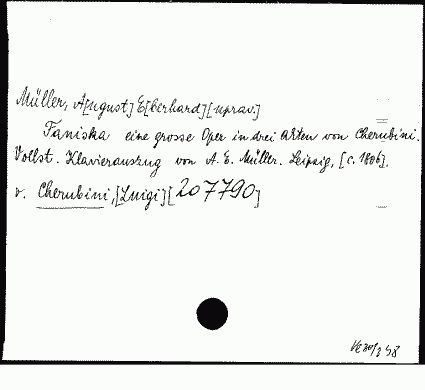 Müller, A[ugust] E[berhard] [uprav.]
Faniska eine grosse Oper in drei Akten von Cherubini.
Vollst. Klavierauszug von A. E. Müller. Leipzig, [c. 1806].
v. Cherubini, [Luigi] [207790]